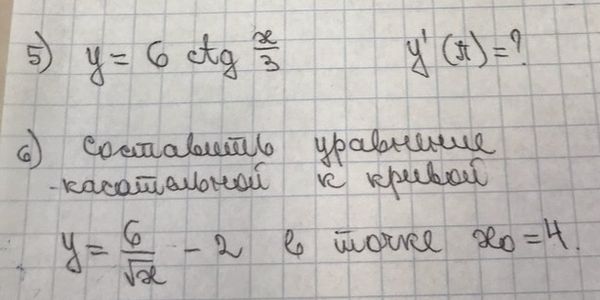 5) y = 6 ctg x/3 y'(π) = ?
6) Составить уравнение
касательной к кривой
y = 6/√x - 2 в точке x₀ = 4.